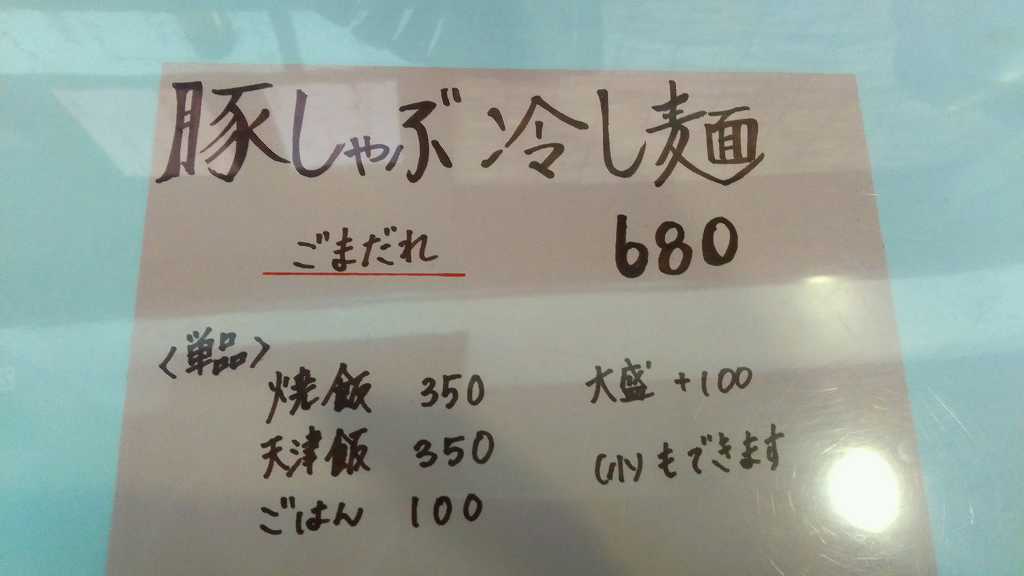 豚しゃぶ 冷し麺
ごまだれ 680
〈単品〉
焼飯 350 大盛 +100
天津飯 350 (小)もできます
ごはん 100